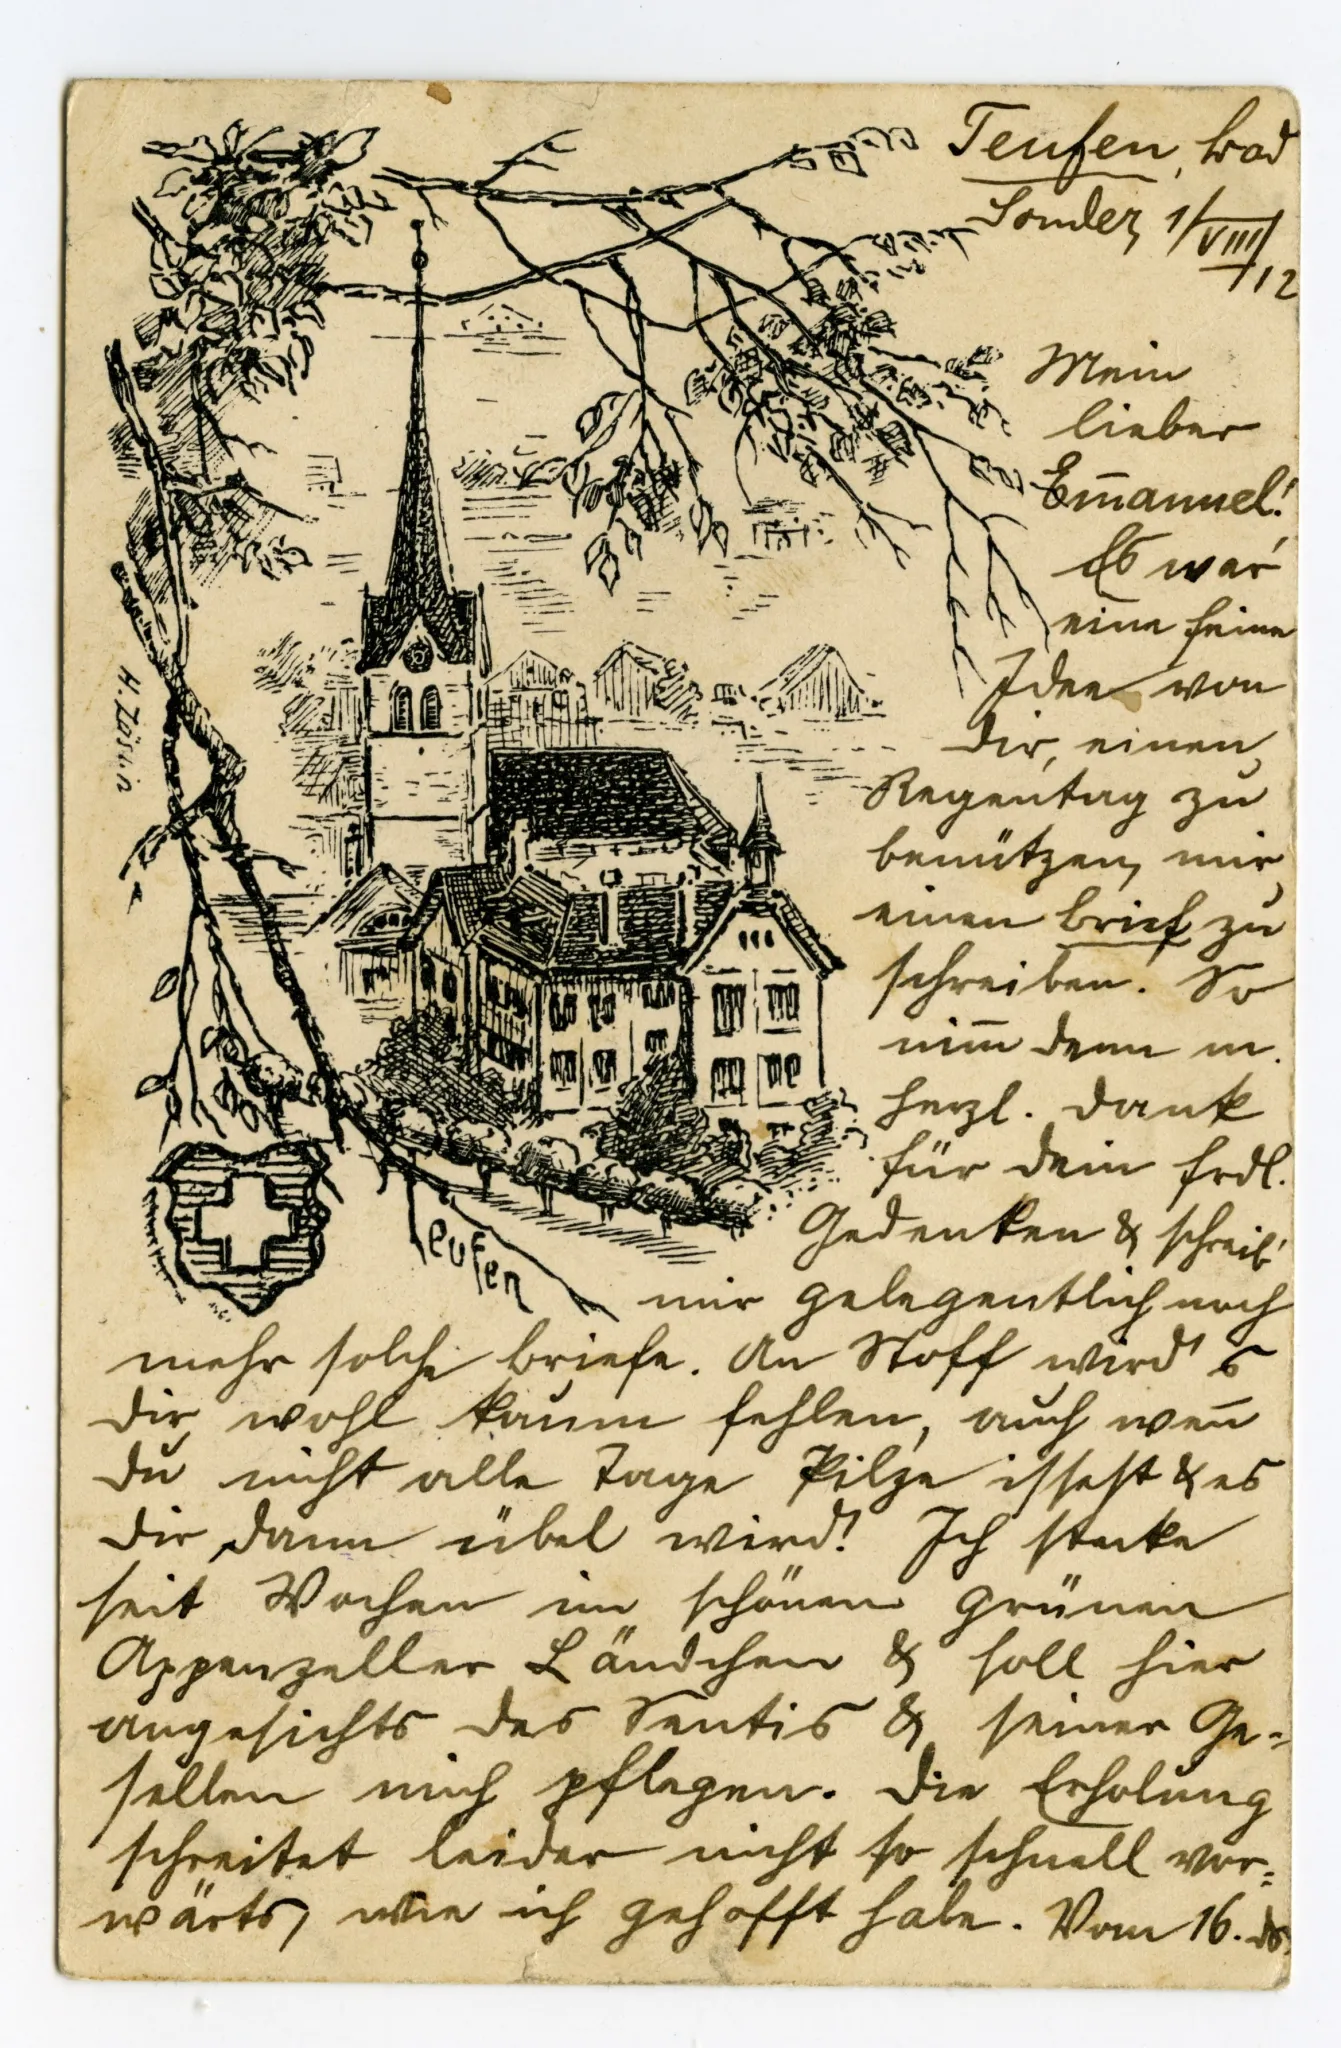 Teufen, Bad
Sonder, 1/VIII/12
Mein
lieber
Em̅anuel!
Es war
eine feine
Idee von
Dir, einen
Regentag zu
benützen, mir
einen Brief zu
schreiben. So
nim̅ denn m.
herzl. Dank
für dein frdl.
Gedenken & schreib'
mir gelegentlich noch
mehr solche Briefe. An Stoff wird's
Dir wohl kaum fehlen, auch wen̅
Du nicht alle Tage Pilze issest & es
Dir dann übel wird! Ich stecke
seit Wochen im schönen grünen
Appenzeller Ländchen & soll hier
angesichts des Sentis & seiner Ge-
sellen mich pflegen. Die Erholung
schreitet leider nicht so schnell vor-
wärts, wie ich gehofft habe. Vom 16. ds.
H. Zösin
Teufen